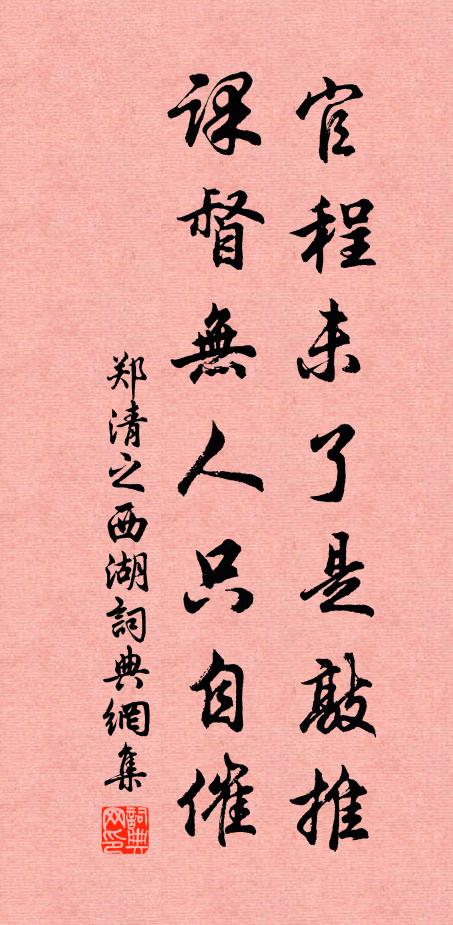 官程未了是敲推
課督無人只自催
郑清之西湖詞典網集
詞典网印